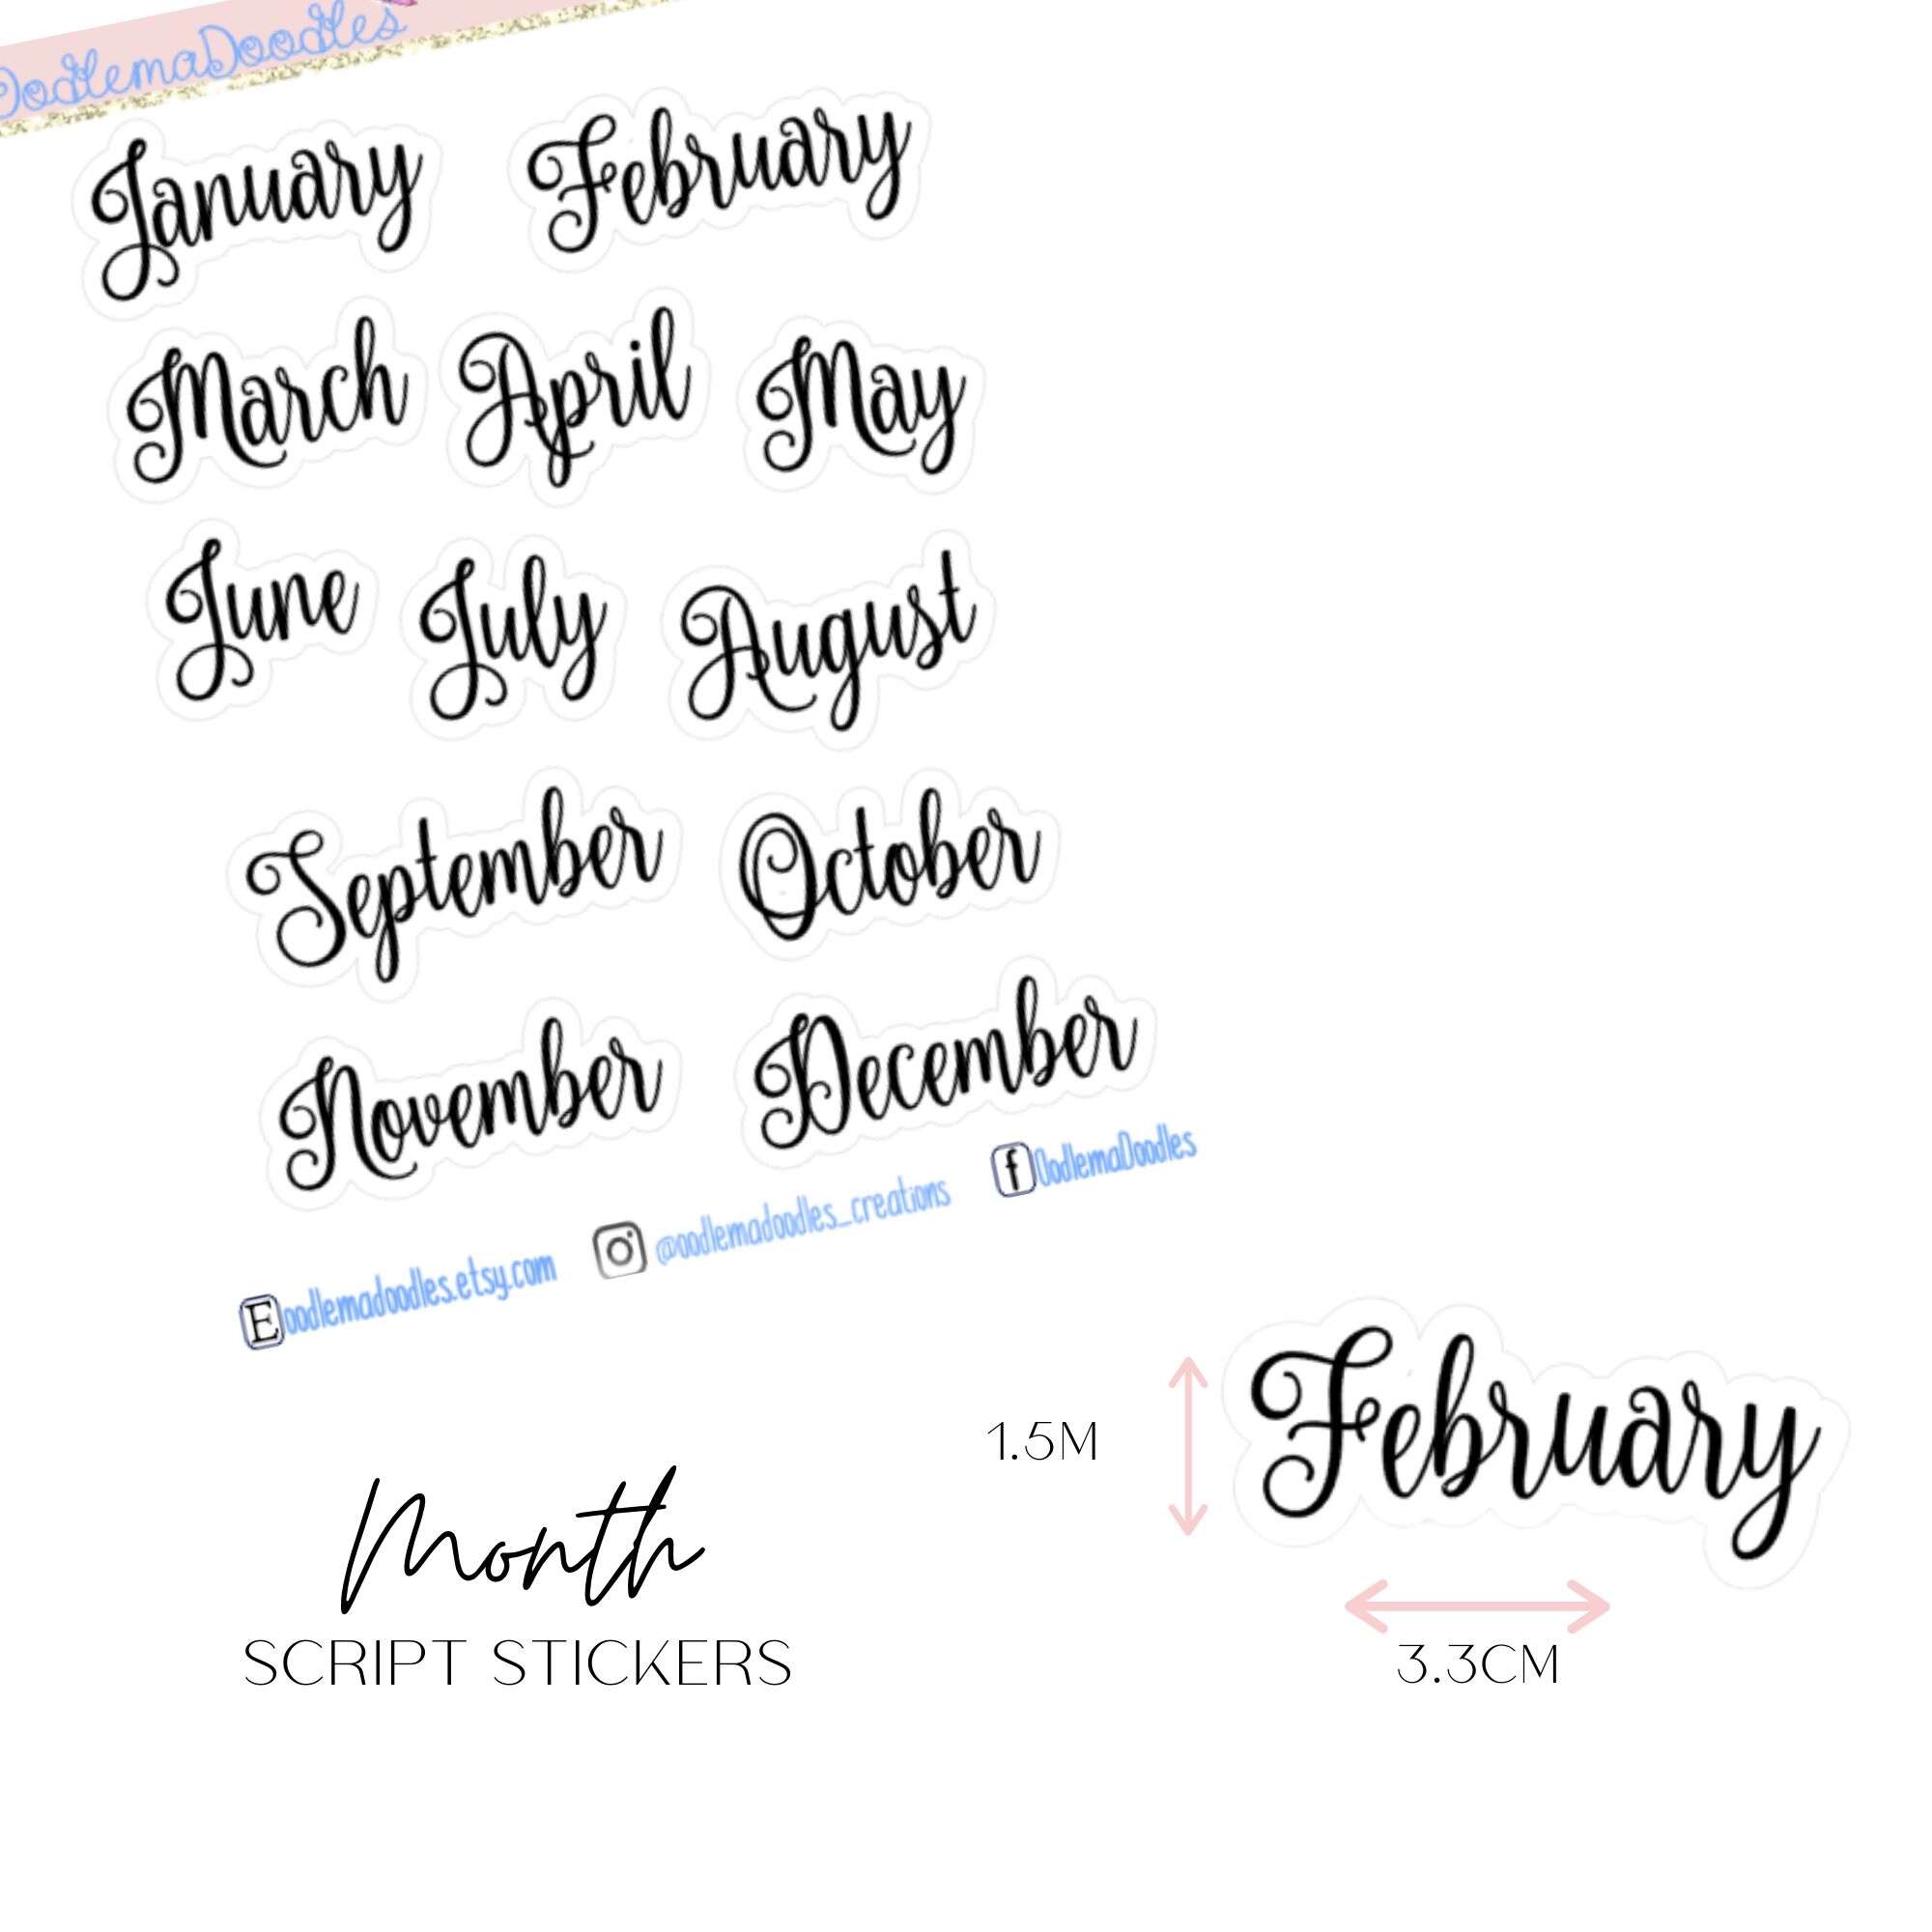 OodlemaDoodles
January February
March April May
June July August
September October
November December
E oodlemadoodles.etsy.com @oodlemadoodles_creations f OodlemaDoodles
February
1.5M
3.3CM
Month
SCRIPT STICKERS